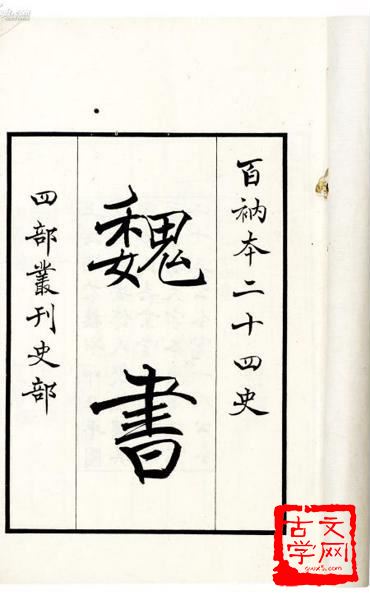 百衲本二十四史
魏書
四部叢刊史部
古文
学网
gwx5.com